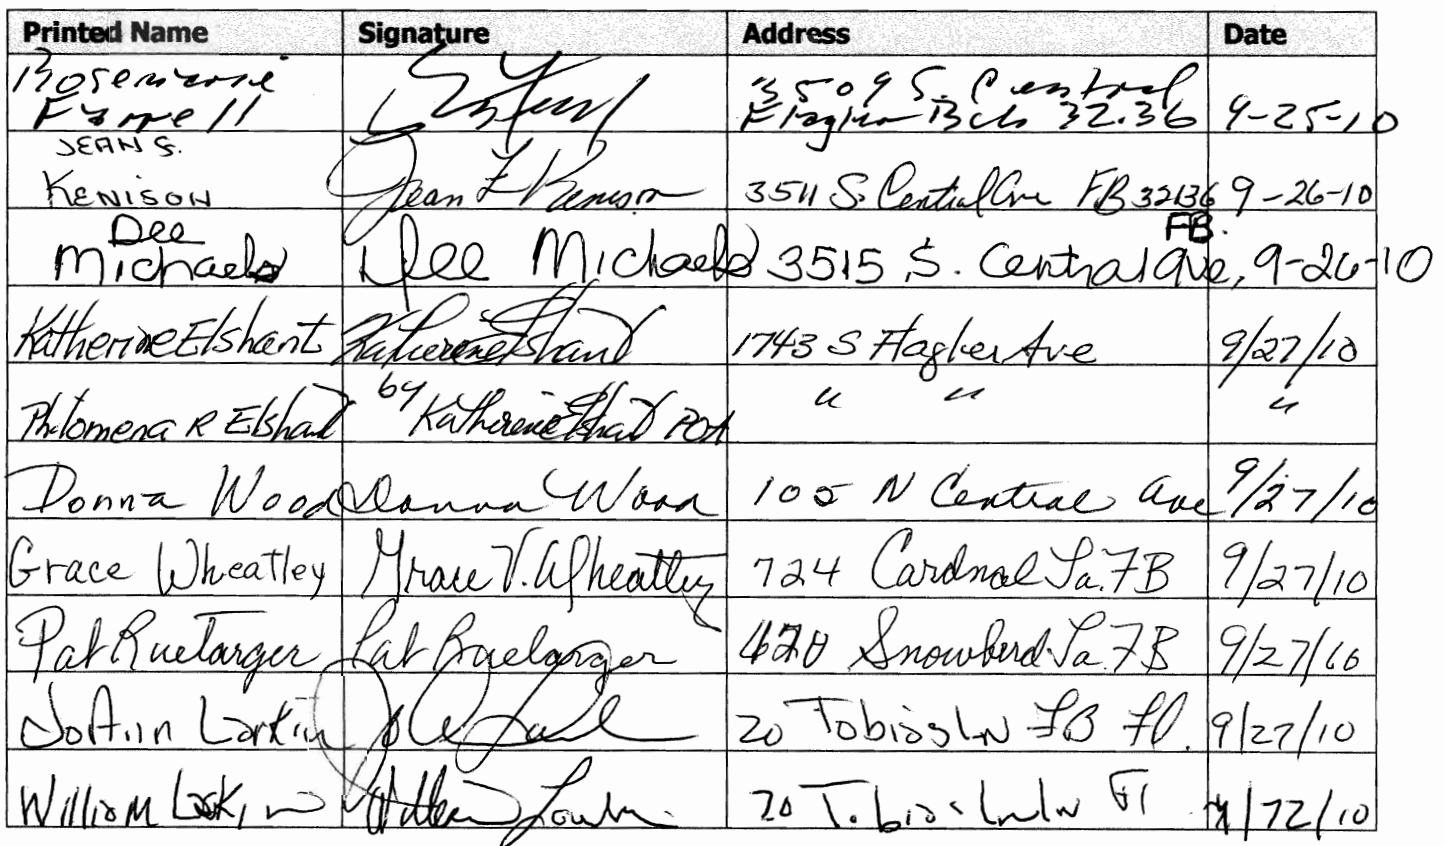 Printed Name Signature Address Date
Rosemarie 3509 S. Central
Flagler Bch 32136 9-25-10
JEAN F.
KENISON Jean F Kenison 3511 S. Central Ave FB 32136 9-26-10
Dee FB.
Michaels Dee Michaels 3515 S. Central Ave, 9-26-10
Katherine Elshant Katherine Elshant 1743 S Flagler Ave 9/27/10
by " " "
Philomena R Elshant Katherine Elshant POA
Donna Wood Donna Wood 105 N Central Ave 9/27/10
Grace Wheatley Grace V. Wheatley 724 Cardnal La. FB 9/27/10
Pat Pat Snowbird La. FB 9/27/10
JoAnn Larkin 20 Tobias LN FB Fl. 9/27/10
William Larkin William Larkin 20 Tobias Ln Fl